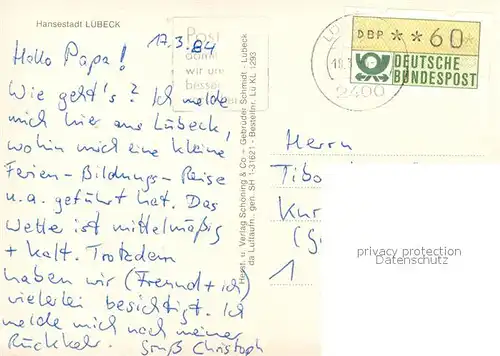 Hansestadt LÜBECK
17.3.84
Hallo Papa!
Wie geht's? Ich melde
mich hier aus Lübeck,
wohin mich eine kleine
Ferien-Bildungs-Reise
u.a. geführt hat. Das
Wetter ist mittelmäßig
+ kalt. Trotzdem
haben wir (Freund + ich)
vielerlei besichtigt. Ich
melde mich nach meiner
Rückkehr. Gruß Christoph
Post
damit
wir uns
besser
Herst. u. Verlag Schöning & Co + Gebrüder Schmidt - Lübeck
da Luftaufn. gen. SH 1-31621 - Bestellnr. Lü KL 1293
DBP * * 60
DEUTSCHE
BUNDESPOST
2400
Herrn
Tibo
Kur
1
privacy protection
Datenschutz